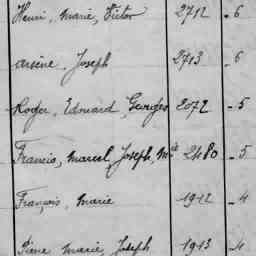 Henri, Marie, Victor 2712 - 6
Arsène, Joseph 2713 - 6
Roger, Edouard, Georges 2072 - 5
Francis, Marcel, Joseph, Mie 2480 - 5
François, Marie 1912 - 4
Pierre Marie, Joseph 1913 - 4